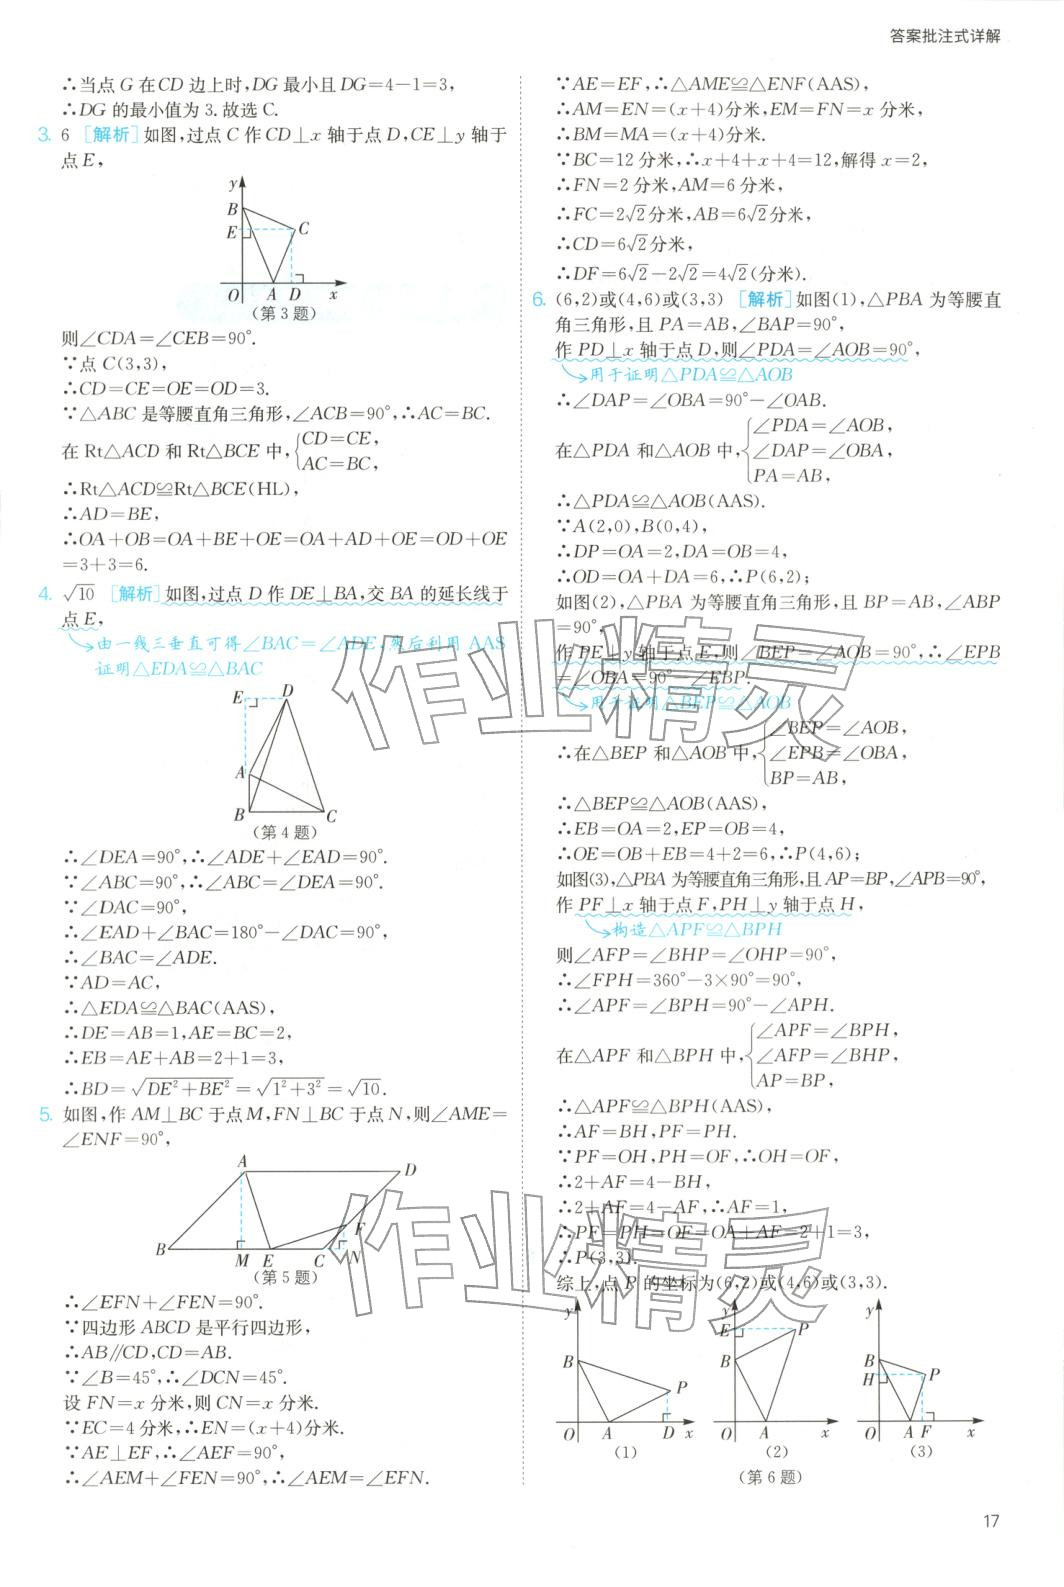 答案批注式详解
∴当点 G 在CD 边上时,DG 最小且 DG=4-1=3,
∴DG 的最小值为 3. 故选 C.
3. 6 [解析]如图,过点 C 作 CD⊥x 轴于点 D,CE⊥y 轴于
点 E,
y
B
E
C
O A D x
(第 3 题)
则∠CDA=∠CEB=90°.
∵点 C(3,3),
∴CD=CE=OE=OD=3.
∵△ABC 是等腰直角三角形,∠ACB=90°,∴AC=BC.
在 Rt△ACD 和 Rt△BCE 中,{CD=CE,
AC=BC,
∴Rt△ACD≌Rt△BCE(HL),
∴AD=BE,
∴OA+OB=OA+BE+OE=OA+AD+OE=OD+OE
=3+3=6.
4. √10 [解析]如图,过点 D 作 DE⊥BA,交 BA 的延长线于
点 E,
由一线三垂直可得∠BAC=∠ADE,然后利用 AAS
证明△EDA≌△BAC
E D
A
B C
(第 4 题)
∴∠DEA=90°,∴∠ADE+∠EAD=90°.
∵∠ABC=90°,∴∠ABC=∠DEA=90°.
∵∠DAC=90°,
∴∠EAD+∠BAC=180°-∠DAC=90°,
∴∠BAC=∠ADE.
∵AD=AC,
∴△EDA≌△BAC(AAS),
∴DE=AB=1,AE=BC=2,
∴EB=AE+AB=2+1=3,
∴BD=√(DE²+BE²)=√(1²+3²)=√10.
5. 如图,作 AM⊥BC 于点 M,FN⊥BC 于点 N,则∠AME=
∠ENF=90°,
A D
F
B M E C N
(第 5 题)
∴∠EFN+∠FEN=90°.
∵四边形 ABCD 是平行四边形,
∴AB∥CD,CD=AB.
∵∠B=45°,∴∠DCN=45°.
设 FN=x 分米,则 CN=x 分米.
∵EC=4 分米,∴EN=(x+4)分米.
∵AE⊥EF,∴∠AEF=90°,
∴∠AEM+∠FEN=90°,∴∠AEM=∠EFN.
∵AE=EF,∴△AME≌△ENF(AAS),
∴AM=EN=(x+4)分米,EM=FN=x 分米,
∴BM=MA=(x+4)分米.
∵BC=12 分米,∴x+4+x+4=12,解得 x=2,
∴FN=2 分米,AM=6 分米,
∴FC=2√2分米,AB=6√2分米,
∴CD=6√2分米,
∴DF=6√2-2√2=4√2(分米).
6. (6,2)或(4,6)或(3,3) [解析]如图(1),△PBA 为等腰直
角三角形,且 PA=AB,∠BAP=90°,
作 PD⊥x 轴于点 D,则∠PDA=∠AOB=90°,
用于证明△PDA≌△AOB
∴∠DAP=∠OBA=90°-∠OAB.
在△PDA 和△AOB 中,{∠PDA=∠AOB,
∠DAP=∠OBA,
PA=AB,
∴△PDA≌△AOB(AAS).
∵A(2,0),B(0,4),
∴DP=OA=2,DA=OB=4,
∴OD=OA+DA=6,∴P(6,2);
如图(2),△PBA 为等腰直角三角形,且 BP=AB,∠ABP
=90°,
作 PE⊥y 轴于点 E,则∠BEP=∠AOB=90°,∴∠EPB
=∠OBA=90°-∠EBP.
用于证明△BEP≌△AOB
∴在△BEP 和△AOB 中,{∠BEP=∠AOB,
∠EPB=∠OBA,
BP=AB,
∴△BEP≌△AOB(AAS),
∴EB=OA=2,EP=OB=4,
∴OE=OB+EB=4+2=6,∴P(4,6);
如图(3),△PBA 为等腰直角三角形,且 AP=BP,∠APB=90°,
作 PF⊥x 轴于点 F,PH⊥y 轴于点 H,
构造△APF≌△BPH
则∠AFP=∠BHP=∠OHP=90°,
∴∠FPH=360°-3×90°=90°,
∴∠APF=∠BPH=90°-∠APH.
在△APF 和△BPH 中,{∠APF=∠BPH,
∠AFP=∠BHP,
AP=BP,
∴△APF≌△BPH(AAS),
∴AF=BH,PF=PH.
∵PF=OH,PH=OF,∴OH=OF,
∴2+AF=4-BH,
∴2+AF=4-AF,∴AF=1,
∴PF=PH=OF=OA+AF=2+1=3,
∴P(3,3).
综上,点 P 的坐标为(6,2)或(4,6)或(3,3).
y
B
P
O A D x
(1)
y
E P
B
O A x
(2)
y
B
H P
O A F x
(3)
(第 6 题)
作业精灵
作业精灵
17